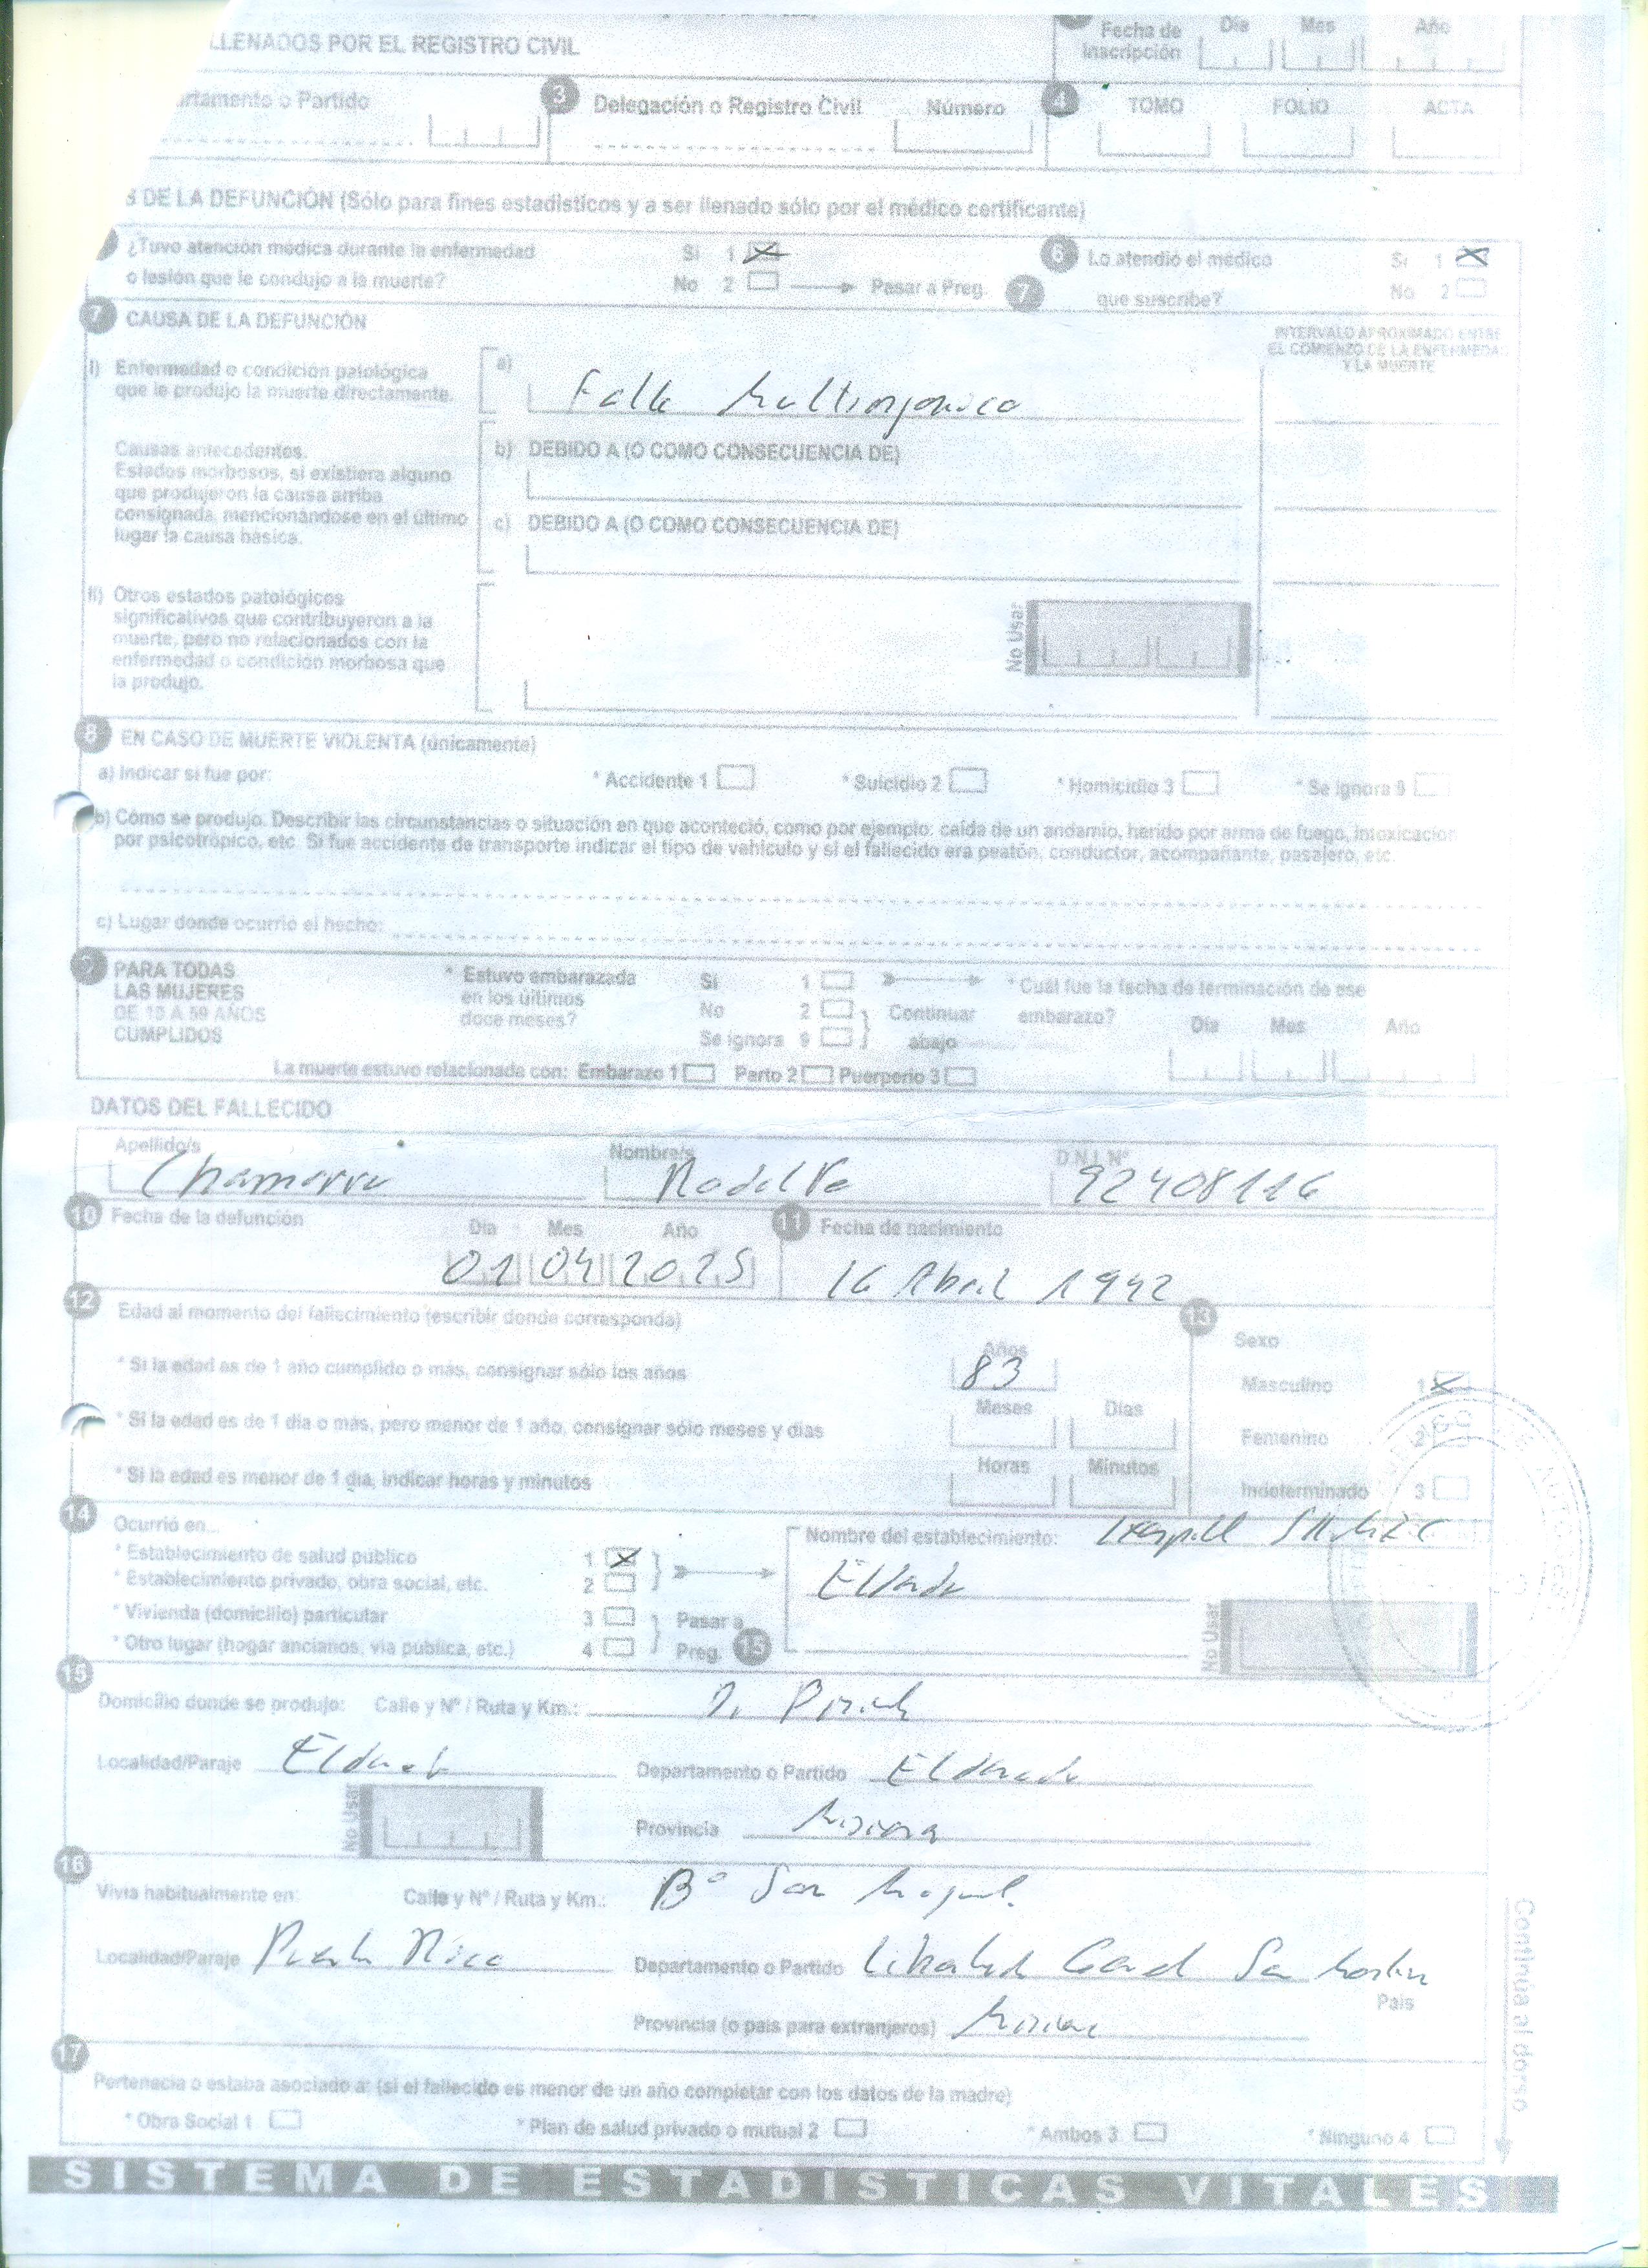 LLENADOS POR EL REGISTRO CIVIL
Fecha de Inscripción Día Mes Año
rtamento o Partido
3 Delegación o Registro Civil Número
4 TOMO FOLIO ACTA
S DE LA DEFUNCIÓN (Sólo para fines estadísticos y a ser llenado sólo por el médico certificante)
¿Tuvo atención médica durante la enfermedad
o lesión que le condujo a la muerte?
Si 1 X
No 2 Pasar a Preg. 7
6 Lo atendió el médico
que suscribe?
Si 1 X
No 2
7 CAUSA DE LA DEFUNCIÓN
INTERVALO APROXIMADO ENTRE
EL COMIENZO DE LA ENFERMEDAD
Y LA MUERTE
I) Enfermedad o condición patológica
que le produjo la muerte directamente.
a) Falla Multiorganica
Causas antecedentes.
Estados morbosos, si existiera alguno
que produjeron la causa arriba
consignada, mencionándose en el último
lugar la causa básica.
b) DEBIDO A (O COMO CONSECUENCIA DE)
c) DEBIDO A (O COMO CONSECUENCIA DE)
II) Otros estados patológicos
significativos que contribuyeron a la
muerte, pero no relacionados con la
enfermedad o condición morbosa que
la produjo.
No Usar
8 EN CASO DE MUERTE VIOLENTA (únicamente)
a) Indicar si fue por: * Accidente 1 * Suicidio 2 * Homicidio 3 * Se ignora 9
b) Cómo se produjo. Describir las circunstancias o situación en que aconteció, como por ejemplo: caída de un andamio, herido por arma de fuego, intoxicacion
por psicotrópico, etc. Si fue accidente de transporte indicar el tipo de vehículo y si el fallecido era peatón, conductor, acompañante, pasajero, etc.
c) Lugar donde ocurrió el hecho:
9 PARA TODAS
LAS MUJERES
DE 10 A 59 AÑOS
CUMPLIDOS
* Estuvo embarazada
en los últimos
doce meses?
Si 1
No 2
Se ignora 9
Continuar
abajo
* Cuál fue la fecha de terminación de ese
embarazo? Día Mes Año
La muerte estuvo relacionada con: Embarazo 1 Parto 2 Puerperio 3
DATOS DEL FALLECIDO
Apellido/s Nombre/s D.N.I. Nº
Chamorro Rodolfo 92408116
10 Fecha de la defunción Día Mes Año
01 04 2025
11 Fecha de nacimiento
16 Abril 1942
12 Edad al momento del fallecimiento (escribir donde corresponda)
* Si la edad es de 1 año cumplido o más, consignar sólo los años
Años
83
* Si la edad es de 1 día o más, pero menor de 1 año, consignar sólo meses y días
Meses Días
* Si la edad es menor de 1 día, indicar horas y minutos
Horas Minutos
13 Sexo
Masculino 1 X
Femenino 2
Indeterminado 3
14 Ocurrió en...
* Establecimiento de salud público 1 X
* Establecimiento privado, obra social, etc. 2
* Vivienda (domicilio) particular 3
* Otro lugar (hogar ancianos, vía pública, etc.) 4
Pasar a
Preg. 15
Nombre del establecimiento: Hospital SAMIC
Eldorado
No Usar
15
Domicilio donde se produjo: Calle y Nº / Ruta y Km.:
Localidad/Paraje Eldorado Departamento o Partido Eldorado
No Usar
Provincia Misiones
16
Vivía habitualmente en: Calle y Nº / Ruta y Km.: Bº San Miguel
Localidad/Paraje Puerto Rico Departamento o Partido Libertador General San Martin
País
Provincia (o país para extranjeros) Misiones
Continúa al dorso
17
Pertenecía o estaba asociado a: (si el fallecido es menor de un año completar con los datos de la madre)
* Obra Social 1 * Plan de salud privado o mutual 2 * Ambos 3 * Ninguno 4
SISTEMA DE ESTADISTICAS VITALES